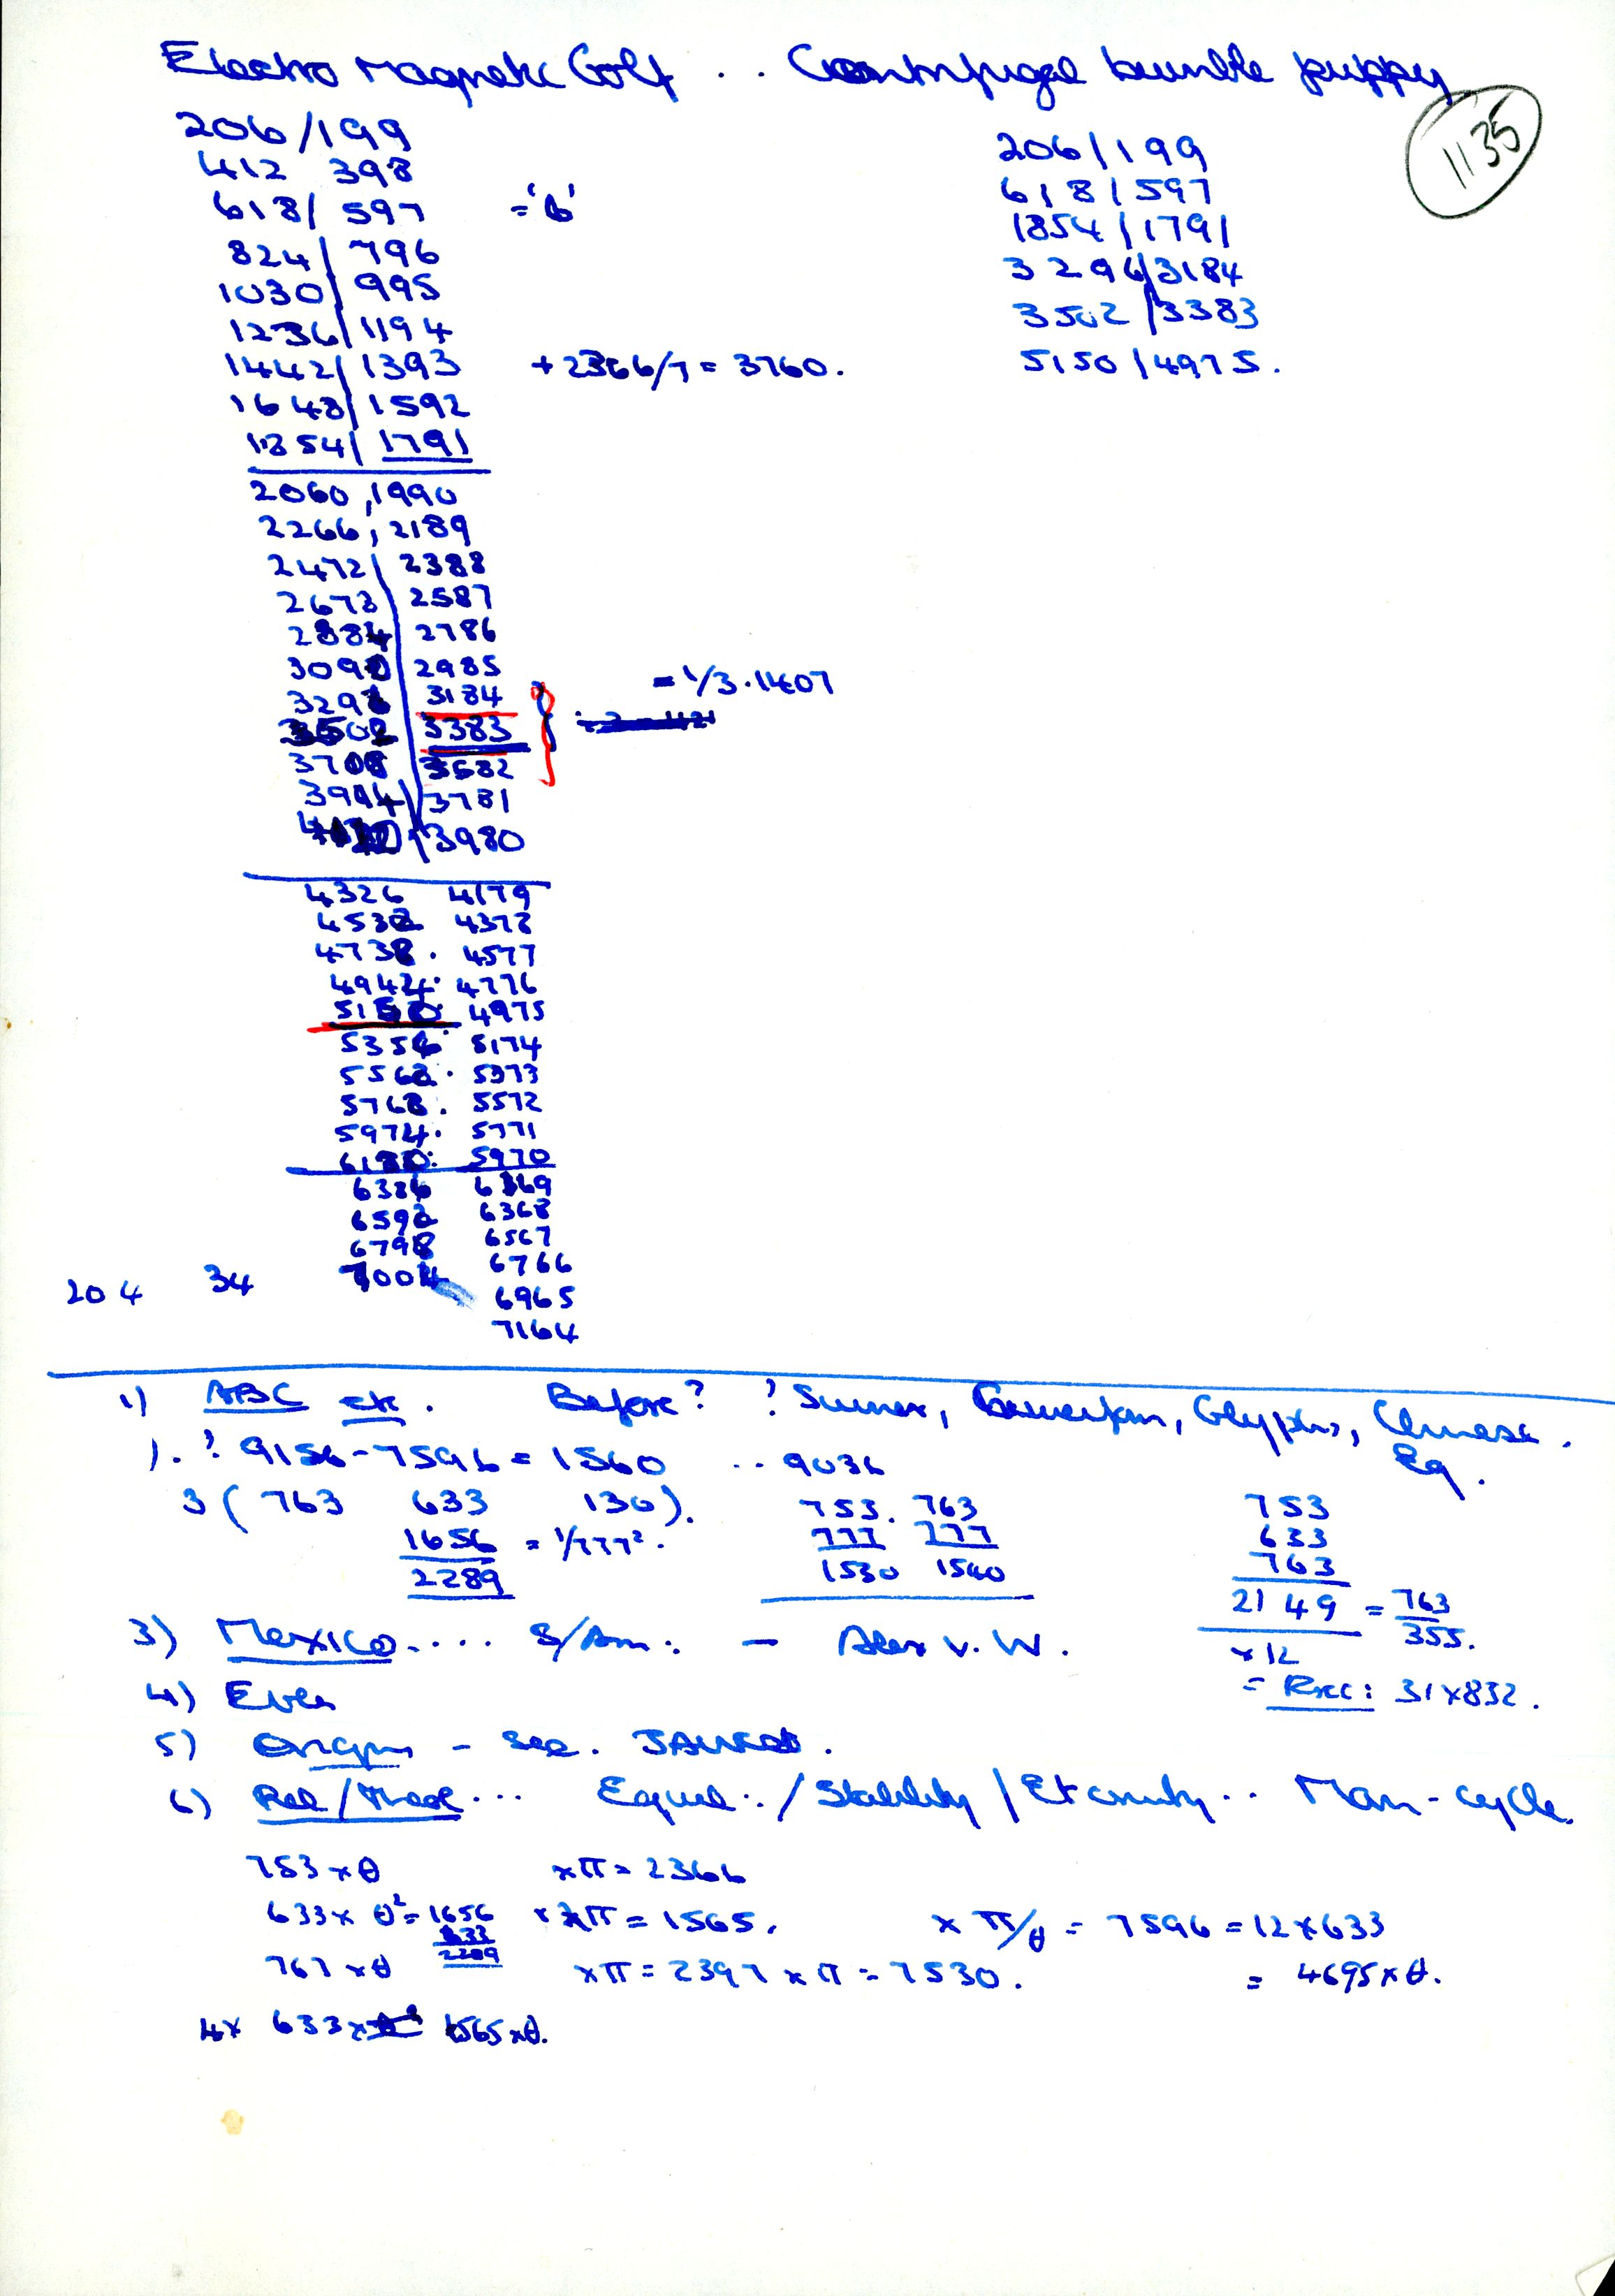 Electro Magnetic Golf . . Centrifugal bumble puppy
1135
206/199
412 398
618/ 597 = 'b'
824/ 796
1030/ 995
1236/1194
1442/1393 + 2366/7 = 3760.
1648/1592
1854/ 1791
2060,1990
2266, 2189
2472/ 2388
2678/ 2587
2884 2786
3090 2985
3296 3184 = 1/3.1407
3502 3383
3708 3582
3914/ 3781
3980
4326 4179
4532 4378
4738. 4577
4944. 4776
5150. 4975
5356. 5174
5562. 5373
5768. 5572
5974. 5771
6180: 5970
6386 6169
6592 6368
6798 6567
204 34 7004 6766
6965
7164
206/199
618/597
1854/1791
3296/3184
3502/3383
5150/4975.
1) ABC etc. Before? ? Sumer, Glyphs, Chinese.
Eg.
). ? 9156-7596 = 1560 .. 9036
3 ( 763 633 130).
1656 = 1/777².
2289
753. 763
777 777
1530 1540
753
633
763
2149 = 763/355.
x 12
= Rxcc: 31x832.
3) Mexico.... S/Am: - Alex v. W.
4)
5) Origin - see.
6) Rel/ ... Equil../Stability/Eternity.. Man-cycle.
753 x θ xπ = 2366
633 x θ² = 1656 = 1565. x π/θ = 7596 = 12x633
633
2289
767 xθ xπ = 2397 x π = 7530. = 4695 x θ.
4x 633x 1565 xθ.